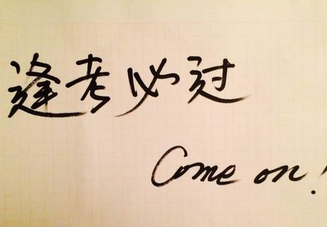 逢考必过
Come on!